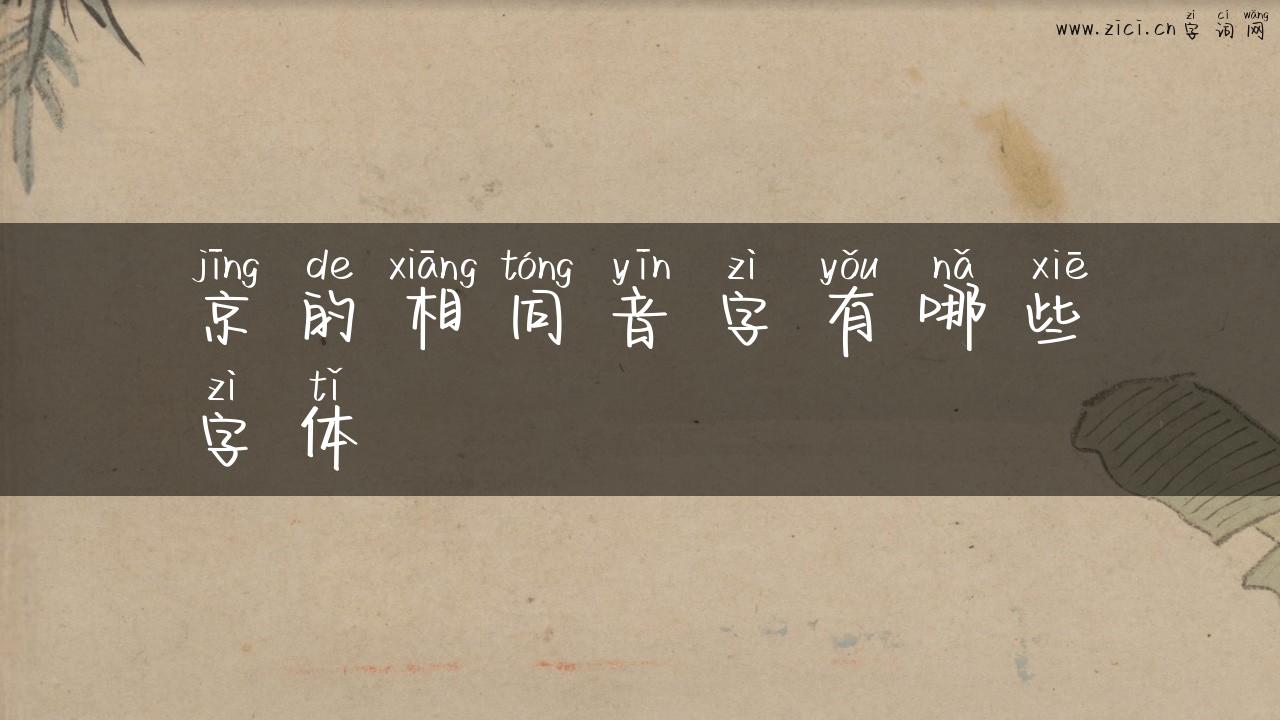 zì cí wǎng
www.zici.cn 字词网
jīng de xiāng tóng yīn zì yǒu nǎ xiē
京的相同音字有哪些
zì tǐ
字体